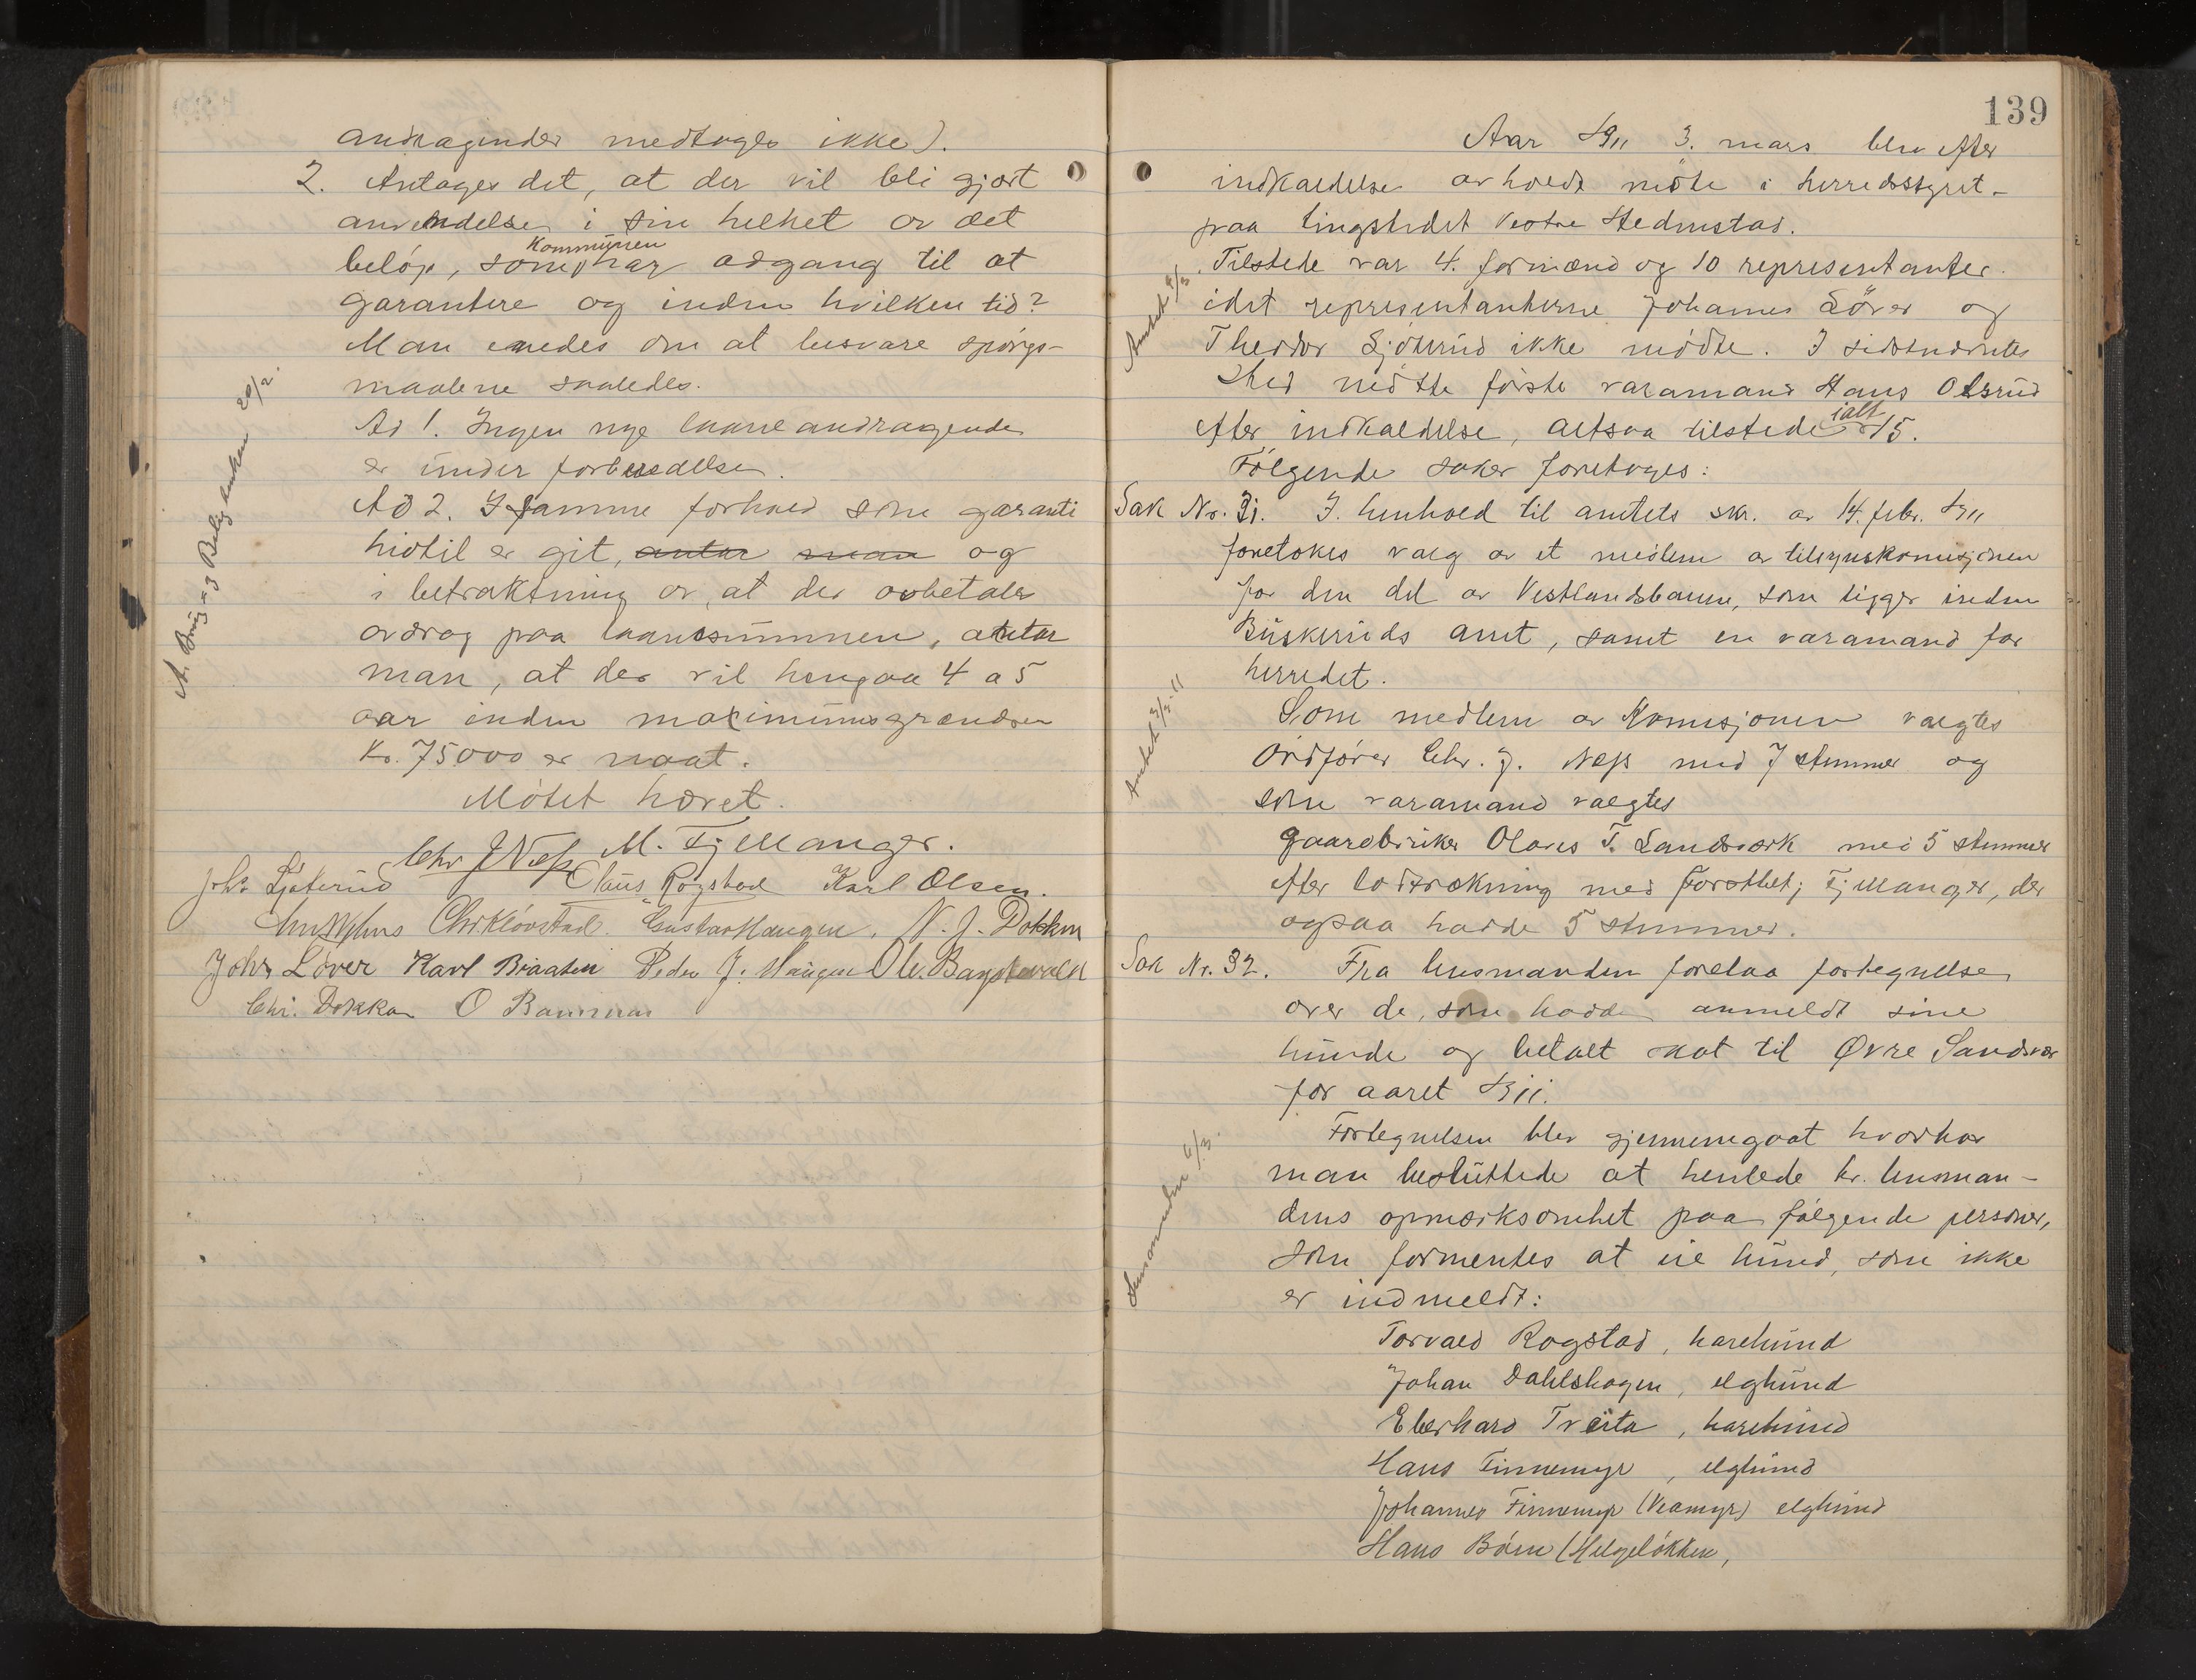 andragender medtages ikke).
2. Antages det, at der vil bli gjort
anvendelse i sin helhet av det
beløp, som kommunen har adgang til at
garantere og inden hvilken tid?
Man enedes om at besvare spørgs-
maalene saaledes.
Ad 1. Ingen nye laaneandragende
er under forberedelse.
Ad 2. I samme forhold som garanti
hidtil er git, antar man og
i betraktning av, at der avbetales
avdrag paa laanesummen, antar
man, at der vil hengaa 4 a 5
aar inden maximumsgrændsen
Kr. 75000 er naat.
Møtet hævet.
Chr J Næss M. Fjellanger.
Johs Ljøterud Claus Rogstad Karl Olsen.
Chr Kløvstad. Gustav Haugen. N. J. Dokken
Johs Løver Karl Braaten Peder J. Haugen Ole
Chr. Dokka O
20/2.
139
Aar 1911 3. mars blev efter
indkaldelse avholdt møte i herredsstyret
paa tingstedet Vestre Hedenstad.
Tilstede var 4. formænd og 10 representanter.
idet representanterne Johannes Løver og
Theodor Ljøterud ikke mødte. I sidstnævntes
sted mødte første varamand Hans Olsrud
efter indkaldelse, altsaa tilstede ialt 15.
Følgende saker foretoges:
Sak Nr. 31. I henhold til amtets skr. av 14. febr. 1911
foretokes valg av et medlem av tilsynskomisjonen
for den del av Vestlandsbanen, som ligger inden
Buskeruds amt, samt en varamand for
herredet.
Som medlem av Komisjonen valgtes
Ordfører Chr. J. Næss med 7 stemmer og
som varamand valgtes
gaardbruker Olaves T. Landsverk med 5 stemmer
efter lodtrækning med Forstbetj Fjellanger, der
ogsaa hadde 5 stemmer.
Sak Nr. 32. Fra lensmanden forelaa fortegnelse
over de, som hadde anmeldt sine
hunde og betalt skat til Øvre Sandsvær
for aaret 1911.
Fortegnelsen blev gjennemgaat hvorhos
man besluttede at henlede hr. lensman-
dens opmerksomhet paa følgende personer,
som formentes at eie hund, som ikke
er indmeldt:
Torvald Rogstad, harehund
Johan Dahlshagen, elghund
Eberhard Tveita, harehund
Hans Finnemyr, elghund
Johannes Finnemyr (Veamyr) elghund
Hans Børn (Helgeløkken,
Amtet 4/3
Amtet 3/5 11
Lensmanden 6/3.